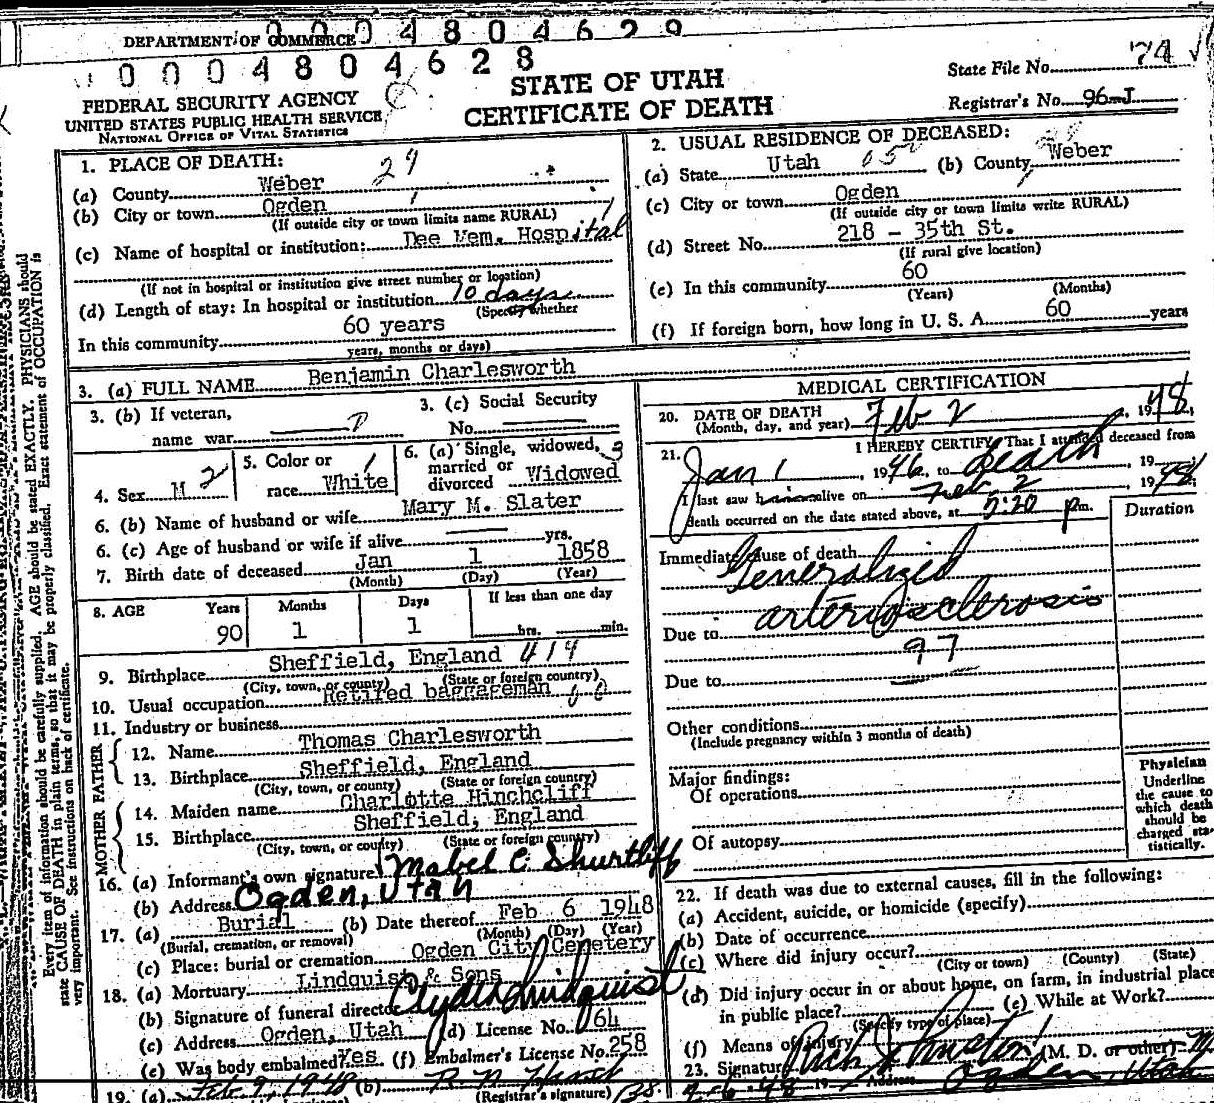 DEPARTMENT OF COMMERCE 0004804629
0004804628
STATE OF UTAH
CERTIFICATE OF DEATH
State File No. 74
Registrar's No. 96-J
FEDERAL SECURITY AGENCY
UNITED STATES PUBLIC HEALTH SERVICE
NATIONAL OFFICE OF VITAL STATISTICS
Every item of information should be carefully supplied. AGE should be stated EXACTLY. PHYSICIANS should
state CAUSE OF DEATH in plain terms, so that it may be properly classified. Exact statement of OCCUPATION is
very important. See instructions on back of certificate.
1. PLACE OF DEATH: 29
(a) County Weber
(b) City or town Ogden
(If outside city or town limits name RURAL)
(c) Name of hospital or institution: Dee Mem. Hospital
(If not in hospital or institution give street number or location)
(d) Length of stay: In hospital or institution 10 days
(Specify whether
In this community 60 years
years, months or days)
2. USUAL RESIDENCE OF DECEASED:
(a) State Utah 05 (b) County Weber
(c) City or town Ogden
(If outside city or town limits write RURAL)
(d) Street No. 218 - 35th St.
(If rural give location)
(e) In this community 60
(Years) (Months)
(f) If foreign born, how long in U. S. A. 60 years
3. (a) FULL NAME Benjamin Charlesworth
3. (b) If veteran,
name war
3. (c) Social Security
No.
4. Sex M 2
5. Color or
race White 1
6. (a) Single, widowed, 3
married or
divorced Widowed
6. (b) Name of husband or wife Mary M. Slater
6. (c) Age of husband or wife if alive yrs.
7. Birth date of deceased Jan 1 1858
(Month) (Day) (Year)
8. AGE Years Months Days If less than one day
90 1 1 hrs. min.
9. Birthplace Sheffield, England 414
(City, town, or county) (State or foreign country)
10. Usual occupation Retired baggageman
11. Industry or business
FATHER
12. Name Thomas Charlesworth
13. Birthplace Sheffield, England
(City, town, or county) (State or foreign country)
MOTHER
14. Maiden name Charlotte Hinchcliff
15. Birthplace Sheffield, England
(City, town, or county) (State or foreign country)
16. (a) Informant's own signature Mabel C. Shurtliff
(b) Address Ogden, Utah
17. (a) Burial (b) Date thereof Feb 6 1948
(Burial, cremation, or removal) (Month) (Day) (Year)
(c) Place: burial or cremation Ogden City Cemetery
18. (a) Mortuary Lindquist & Sons
(b) Signature of funeral director Clyde Lindquist
(c) Address Ogden, Utah (d) License No. 64
(e) Was body embalmed? Yes (f) Embalmer's License No. 258
19. (a) Feb 9, 1948 (b)
(Registrar's signature)
MEDICAL CERTIFICATION
20. DATE OF DEATH
(Month, day, and year) Feb 2, 1948
21. I HEREBY CERTIFY, That I attended deceased from
Jan 1, 1946, to death, 19
I last saw him alive on Feb 2, 1948,
death occurred on the date stated above, at 5:20 pm.
Duration
Immediate cause of death
Generalized
arteriosclerosis
Due to
97
Due to
Other conditions
(Include pregnancy within 3 months of death)
Major findings:
Of operations
Of autopsy
Physician
Underline
the cause to
which death
should be
charged sta-
tistically.
22. If death was due to external causes, fill in the following:
(a) Accident, suicide, or homicide (specify)
(b) Date of occurrence
(c) Where did injury occur?
(City or town) (County) (State)
(d) Did injury occur in or about home, on farm, in industrial place
in public place? (e) While at Work?
(Specify type of place)
(f) Means of injury
23. Signature Rich Johnston (M. D. or other) M
2-6-48 19 Address Ogden, Utah